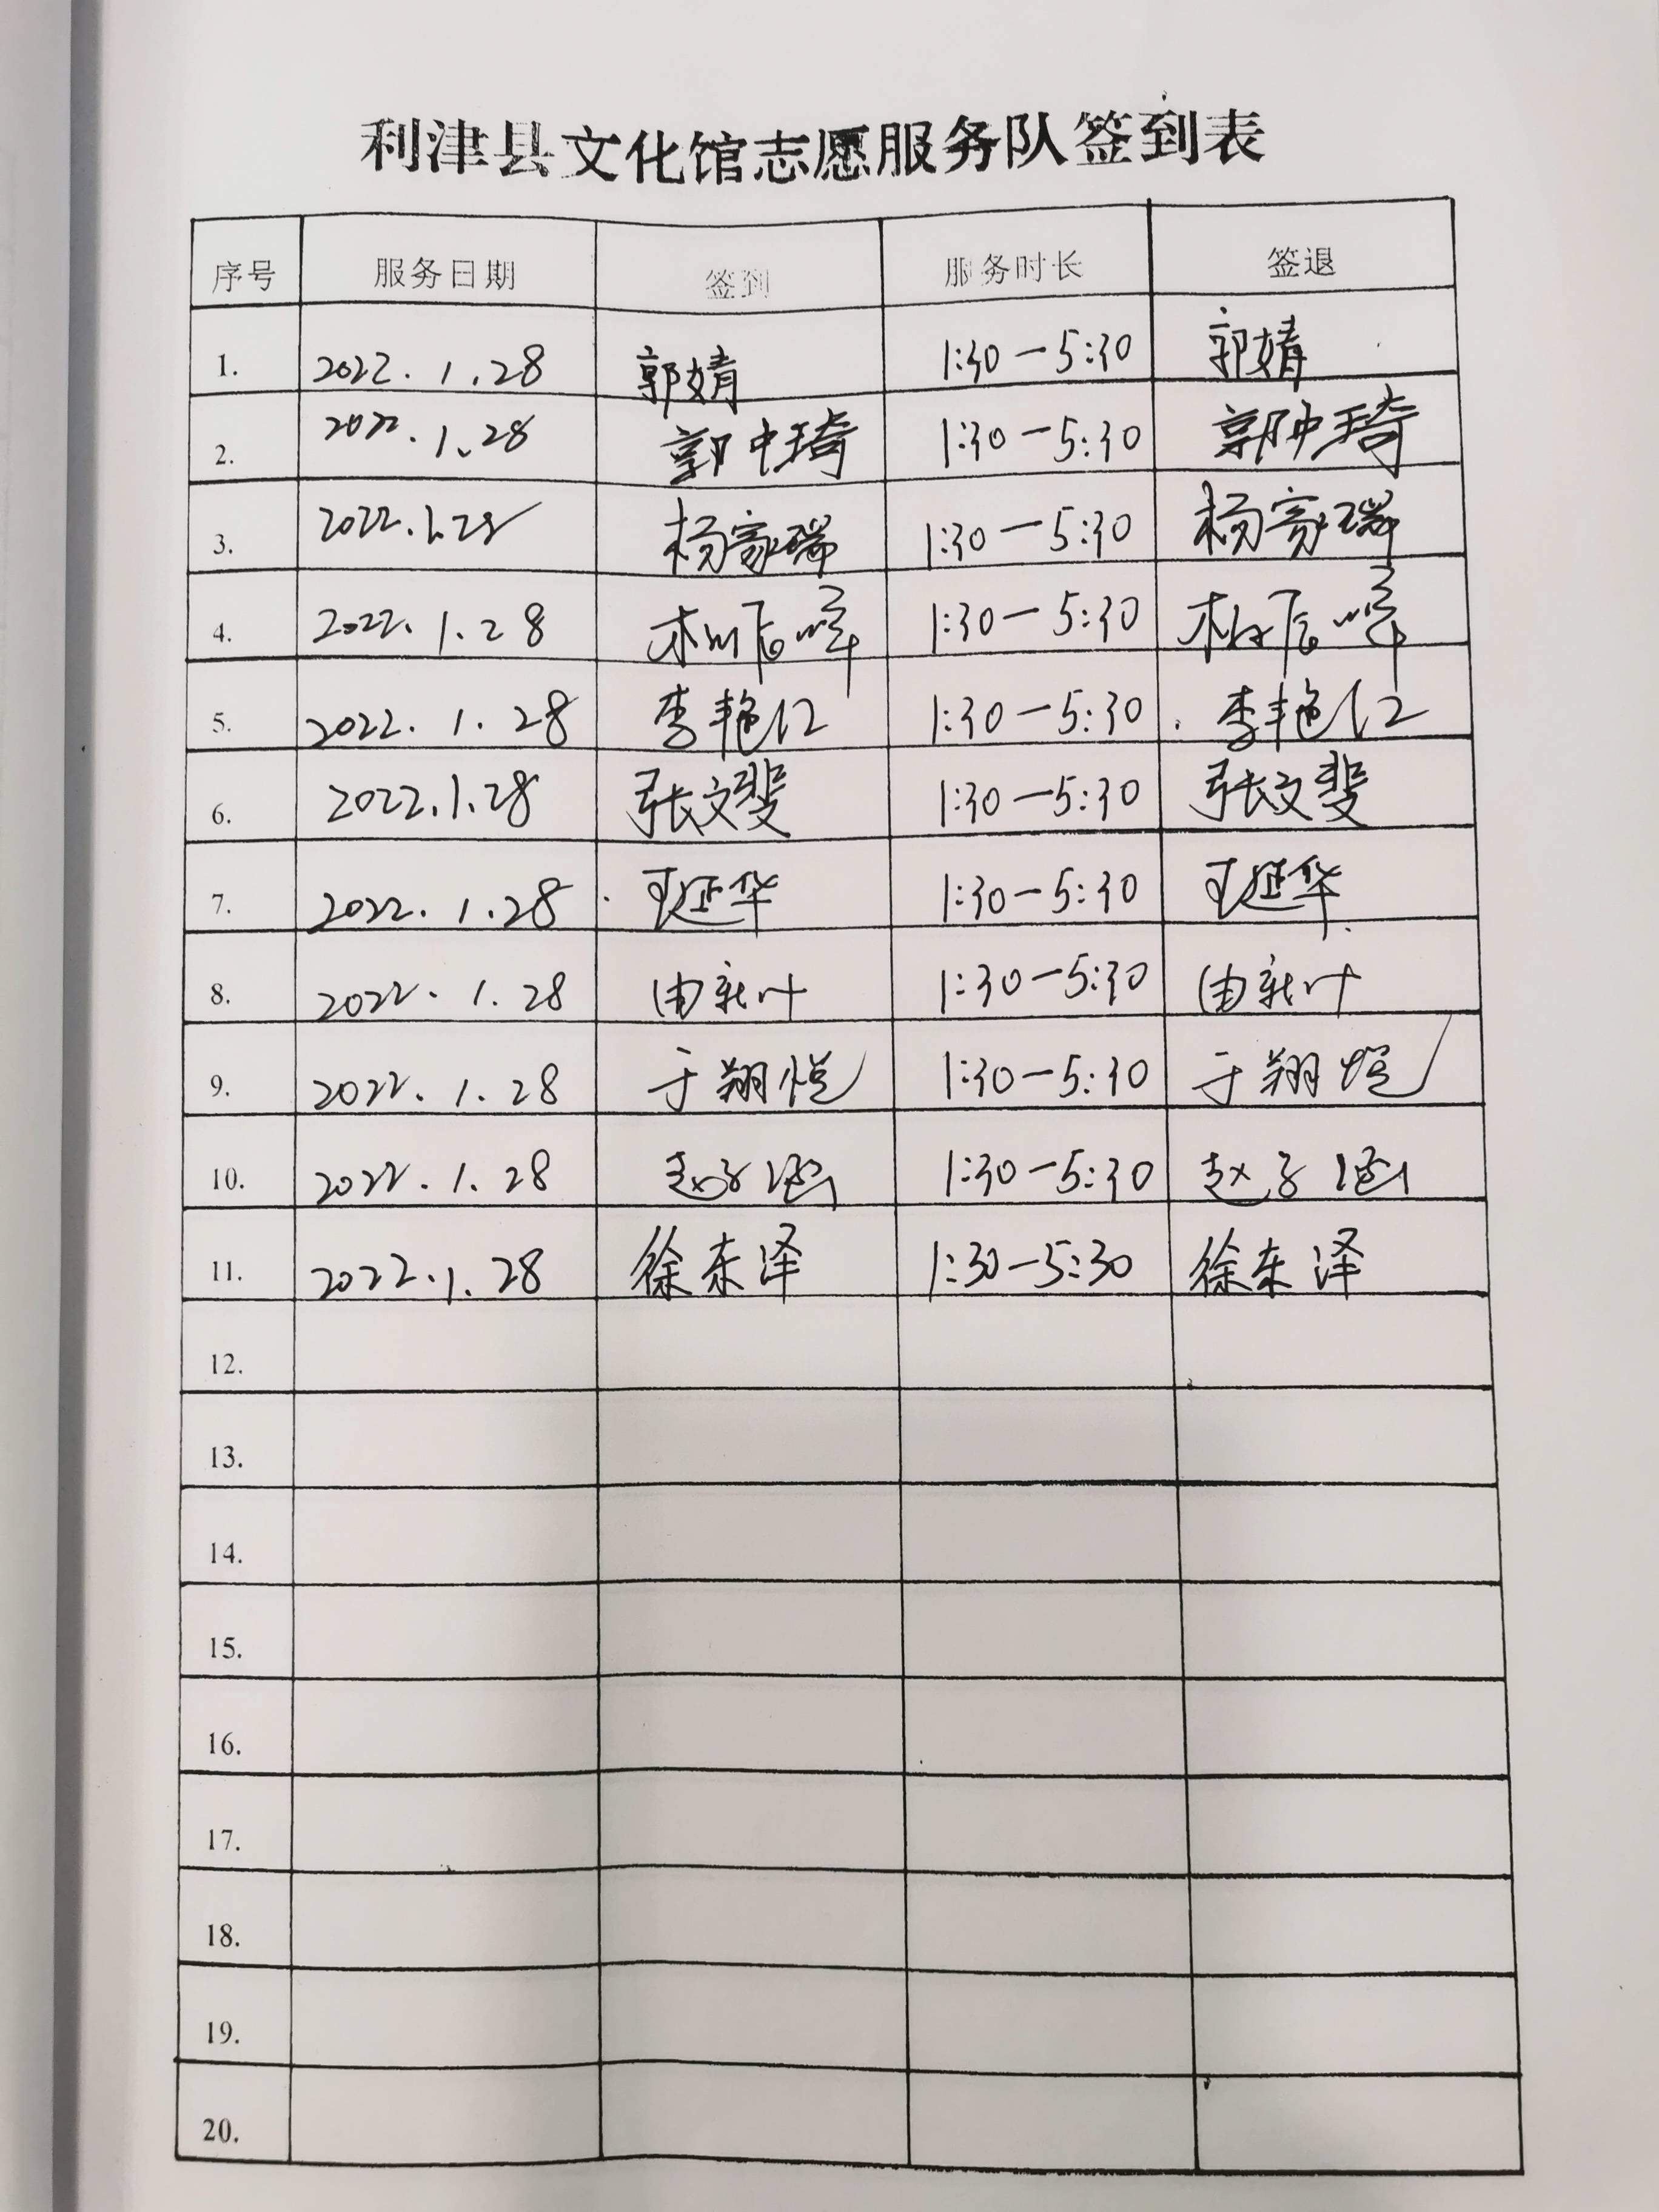 利津县文化馆志愿服务队签到表
序号 服务日期 签到 服务时长 签退
1. 2022.1.28 郭婧 1:30-5:30 郭婧
2. 2022.1.28 郭中琦 1:30-5:30 郭中琦
3. 2022.1.28 杨家瑞 1:30-5:30 杨家瑞
4. 2022.1.28 1:30-5:30
5. 2022.1.28 李艳红 1:30-5:30 李艳红
6. 2022.1.28 张文斐 1:30-5:30 张文斐
7. 2022.1.28 王延华 1:30-5:30 王延华
8. 2022.1.28 由新叶 1:30-5:30 由新叶
9. 2022.1.28 于翔 1:30-5:30 于翔
10. 2022.1.28 赵子涵 1:30-5:30 赵子涵
11. 2022.1.28 徐东泽 1:30-5:30 徐东泽
12.
13.
14.
15.
16.
17.
18.
19.
20.